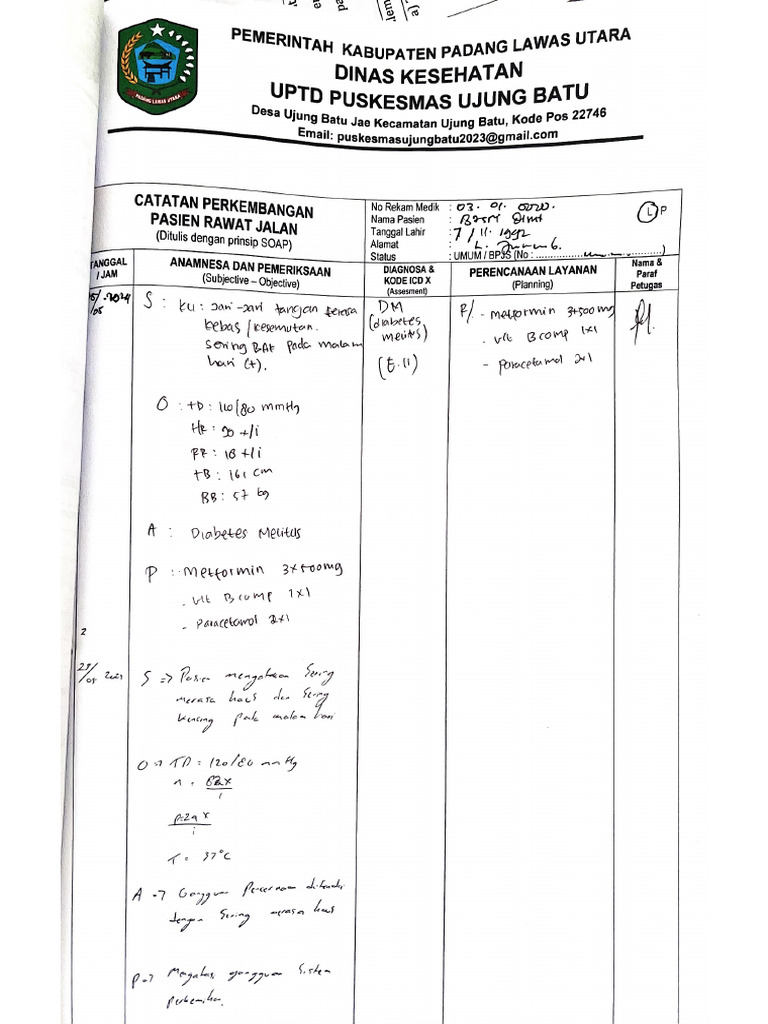 a)
PADANG LAWAS UTARA
PEMERINTAH KABUPATEN PADANG LAWAS UTARA
DINAS KESEHATAN
UPTD PUSKESMAS UJUNG BATU
Desa Ujung Batu Jae Kecamatan Ujung Batu, Kode Pos 22746
Email: puskesmasujungbatu2023@gmail.com
CATATAN PERKEMBANGAN
PASIEN RAWAT JALAN
(Ditulis dengan prinsip SOAP)
No Rekam Medik : 03. 01. 0020.
Nama Pasien :
L P
Tanggal Lahir : 7/11.
Alamat : L.
Status : UMUM / BPJS (No :
TANGGAL
/ JAM
ANAMNESA DAN PEMERIKSAAN
(Subjective – Objective)
DIAGNOSA &
KODE ICD X
(Assesment)
PERENCANAAN LAYANAN
(Planning)
Nama &
Paraf
Petugas
/05 -2024
S : KU : Jari-Jari tangan terasa
kebas / kesemutan.
sering BAK pada malam
hari (+).
DM
(diabetes
melitus)
(E.11)
R/. - metformin 3x500mg
. vit B comp 1x1
- Paracetamol 2x1
O : TD : 110/80 mmHg
HR : 90 +/i
RR : 18 +/i
TB : 161 cm
BB : 57 kg
A : Diabetes Melitus
P : - Metformin 3x500mg
. vit B comp 1x1
- Paracetamol 2x1
2
23/05
S => Pasien mengatakan Sering
merasa haus dan Sering
kencing pada malam hari
O => TD = 120/80 mmHg
n = 82x/i
p=2q x/i
T = 37°C
A => Gangguan Pencernaan ditandai
dengan Sering merasa haus
P => Mengatasi gangguan Sistem
Perkemihan.